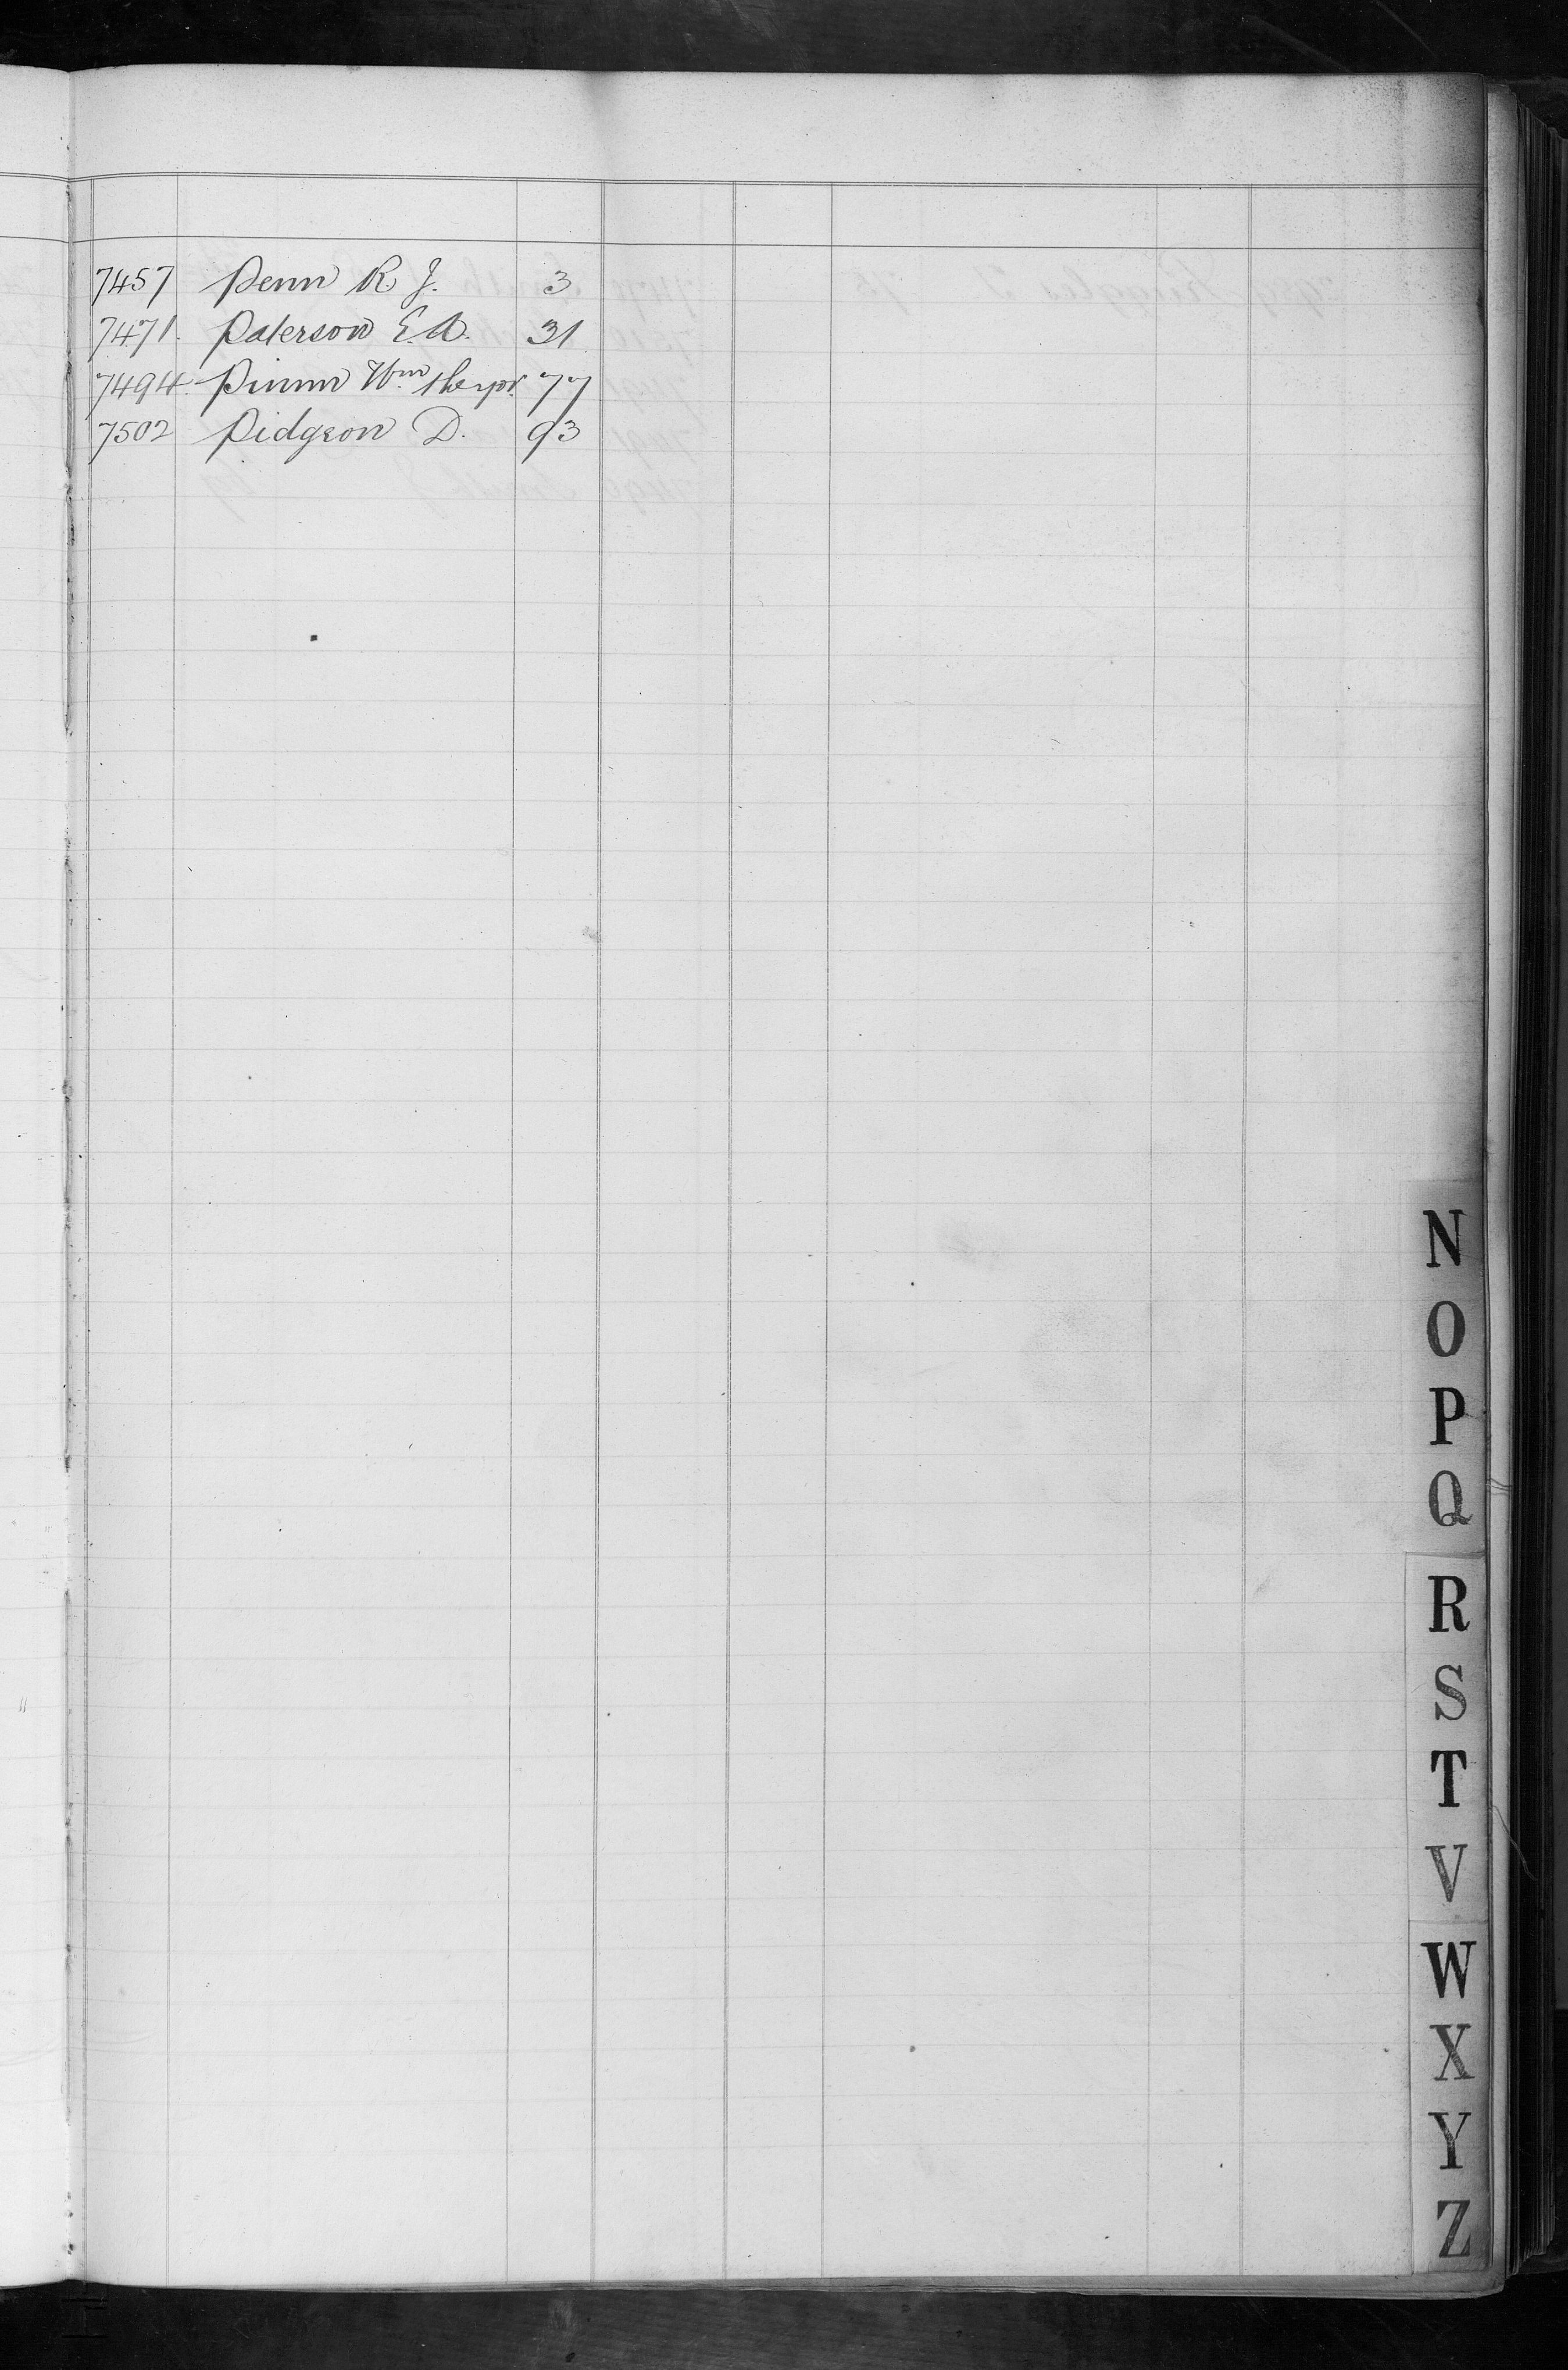 7457 Penn R. J. 3
7471. Paterson E. A. 31
7494 Pimm Wm 77
7502 Pidgeon D. 93
N
O
P
Q
R
S
T
V
W
X
Y
Z